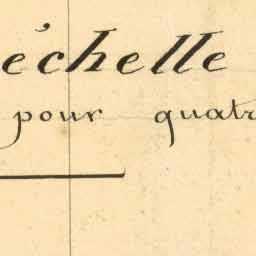 échelle
pour quatr